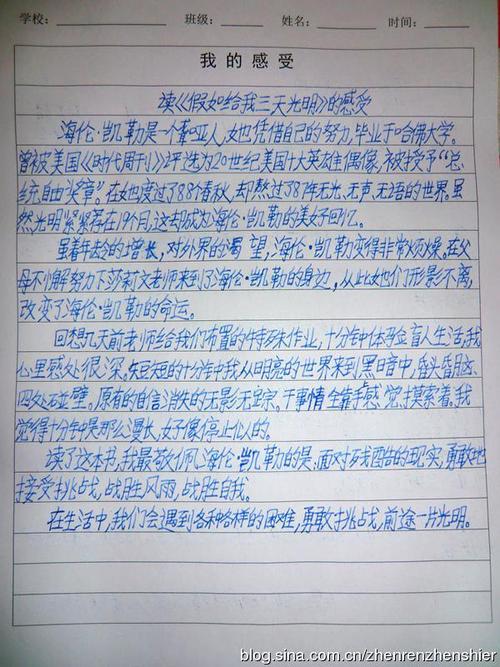 学校: 班级: 姓名: 时间:
我的感受
读《假如给我三天光明》的感受
海伦·凯勒是一个聋哑人,她凭借自己的努力,毕业于哈佛大学。
曾被美国《时代周刊》评选为20世纪美国十大英雄偶像,被授予“总
统自由奖章”。在她度过了88个春秋,却熬过了87年无光、无声、无语的世界。虽
然光明紧紧存在19个月,这却成为海伦·凯勒的美好回忆。
随着年龄的增长,对外界的渴望,海伦·凯勒变得非常烦燥。在父
母不懈努力下莎莉文老师来到了海伦·凯勒的身边,从此她们形影不离,
改变了海伦·凯勒的命运。
回想几天前老师给我们布置的特殊作业,十分钟体验盲人生活,我
心里感处很深。短短的十分钟中我从明亮的世界来到黑暗中,昏头昏脑、
四处碰壁。原有的自信消失的无影无踪。干事情全靠手感觉,摸索着。我
觉得十分钟是那么漫长,好像停止似的。
读了这本书,我最敬佩海伦·凯勒的是:面对残酷的现实,勇敢地
接受挑战,战胜风雨,战胜自我。
在生活中,我们会遇到各种各样的困难,勇敢挑战,前途一片光明。
blog.sina.com.cn/zhenrenzhenshier